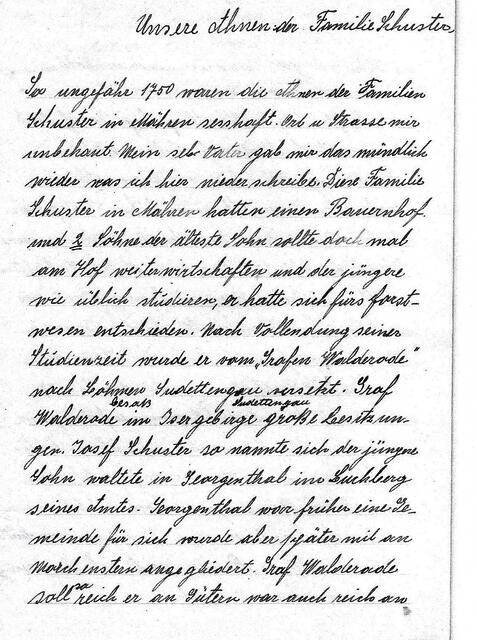 Unsere Ahnen der Familie Schuster.
So ungefähr 1750 waren die Ahnen der Familien
Schuster in Mähren sesshaft. Ort u Strasse mir
unbekant. Mein seb. Vater gab mir das mündlich
wieder was ich hier niederschreibe. Diese Familie
Schuster in Mähren hatten einen Bauernhof.
und 2 Söhne der älteste Sohn sollte doch mal
am Hof weiterwirtschaften und der jüngere
wie üblich studieren, er hatte sich fürs forst-
wesen entschieden. Nach Vollendung seiner
Studienzeit wurde er vom „Grafen Walderode"
nach Böhmen Sudettengau versetzt. Graf
besaß Sudettengau
Walderode im Isergebirge große Besitzun-
gen. Josef Schuster so nannte sich der jüngere
Sohn waltete in Georgenthal im Buchberg
seines Amtes. Georgenthal war früher eine Ge-
meinde für sich wurde aber später mit an
Morchenstern angegliedert. Graf Walderode
soll so reich er an Gütern war auch reich an